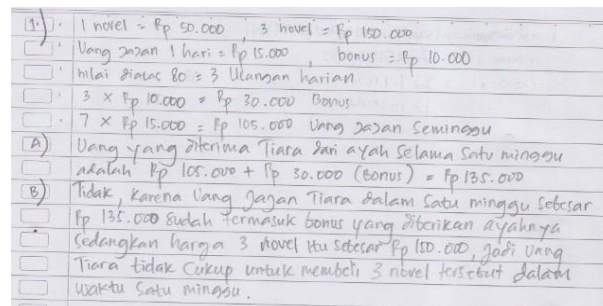 1.) 1 novel = Rp 50.000 , 3 novel = Rp 150.000
Uang jajan 1 hari = Rp 15.000 , bonus = Rp 10.000
nilai diatas 80 = 3 Ulangan harian
3 x Rp 10.000 = Rp 30.000 Bonus
7 x Rp 15.000 = Rp 105.000 Uang jajan seminggu
A) Uang yang diterima Tiara dari ayah selama satu minggu
adalah Rp 105.000 + Rp 30.000 (bonus) = Rp 135.000
B) Tidak, karena Uang jajan Tiara dalam satu minggu sebesar
Rp 135.000 sudah termasuk bonus yang diberikan ayahnya
sedangkan harga 3 novel itu sebesar Rp 150.000, jadi uang
Tiara tidak cukup untuk membeli 3 novel tersebut dalam
waktu satu minggu.